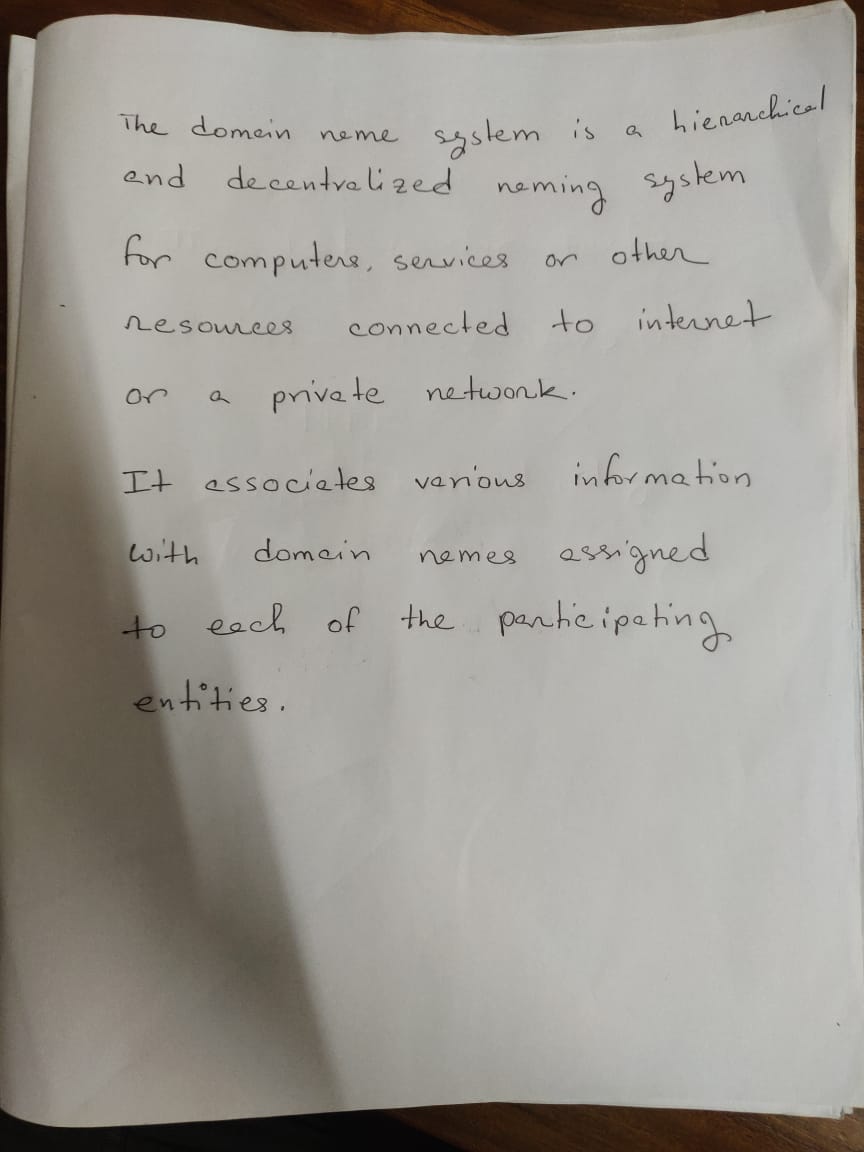 The domain name system is a hierarchical
and decentralized naming system
for computers, services or other
resources connected to internet
or a private network.
It associates various information
with domain names assigned
to each of the participating
entities.